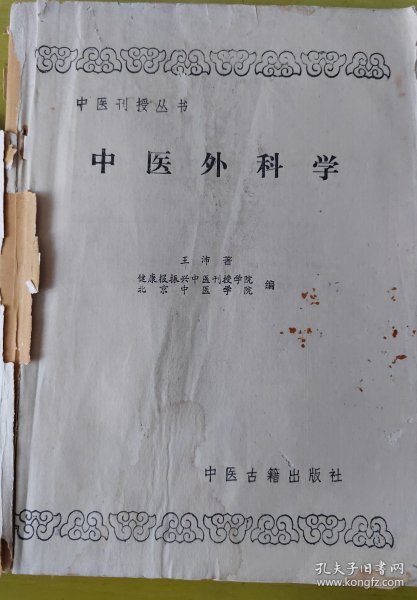 中医刊授丛书
中医外科学
王沛著
健康报振兴中医刊授学院
北京中医学院
编
中医古籍出版社
孔夫子旧书网
www.kongfz.com